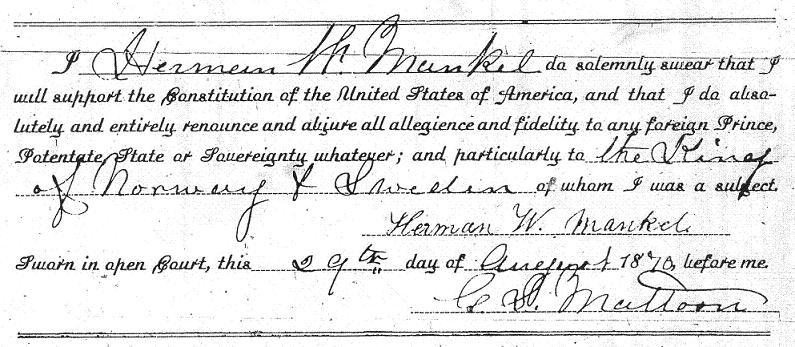 I Herman W. Mankel do solemnly swear that I
will support the Constitution of the United States of America, and that I do abso-
lutely and entirely renounce and abjure all allegience and fidelity to any foreign Prince,
Potentate, State or Sovereignty whatever; and particularly to the King
of Norway & Sweden of whom I was a subject.
Herman W. Mankel
Sworn in open Court, this 29th day of August 1870, before me.
Mattoon